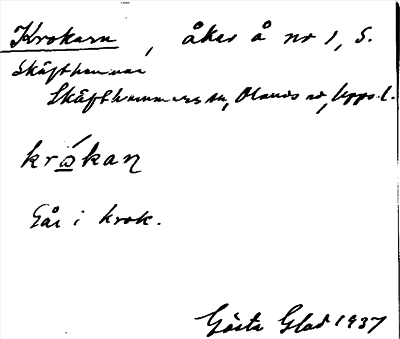 Krokarn, åker å nr 1, S.
Skäfthammar
Skäfthammars sn, Olands hd, Upps. l.
krɷ́kan
Går i krok.
Gösta Glad 1937